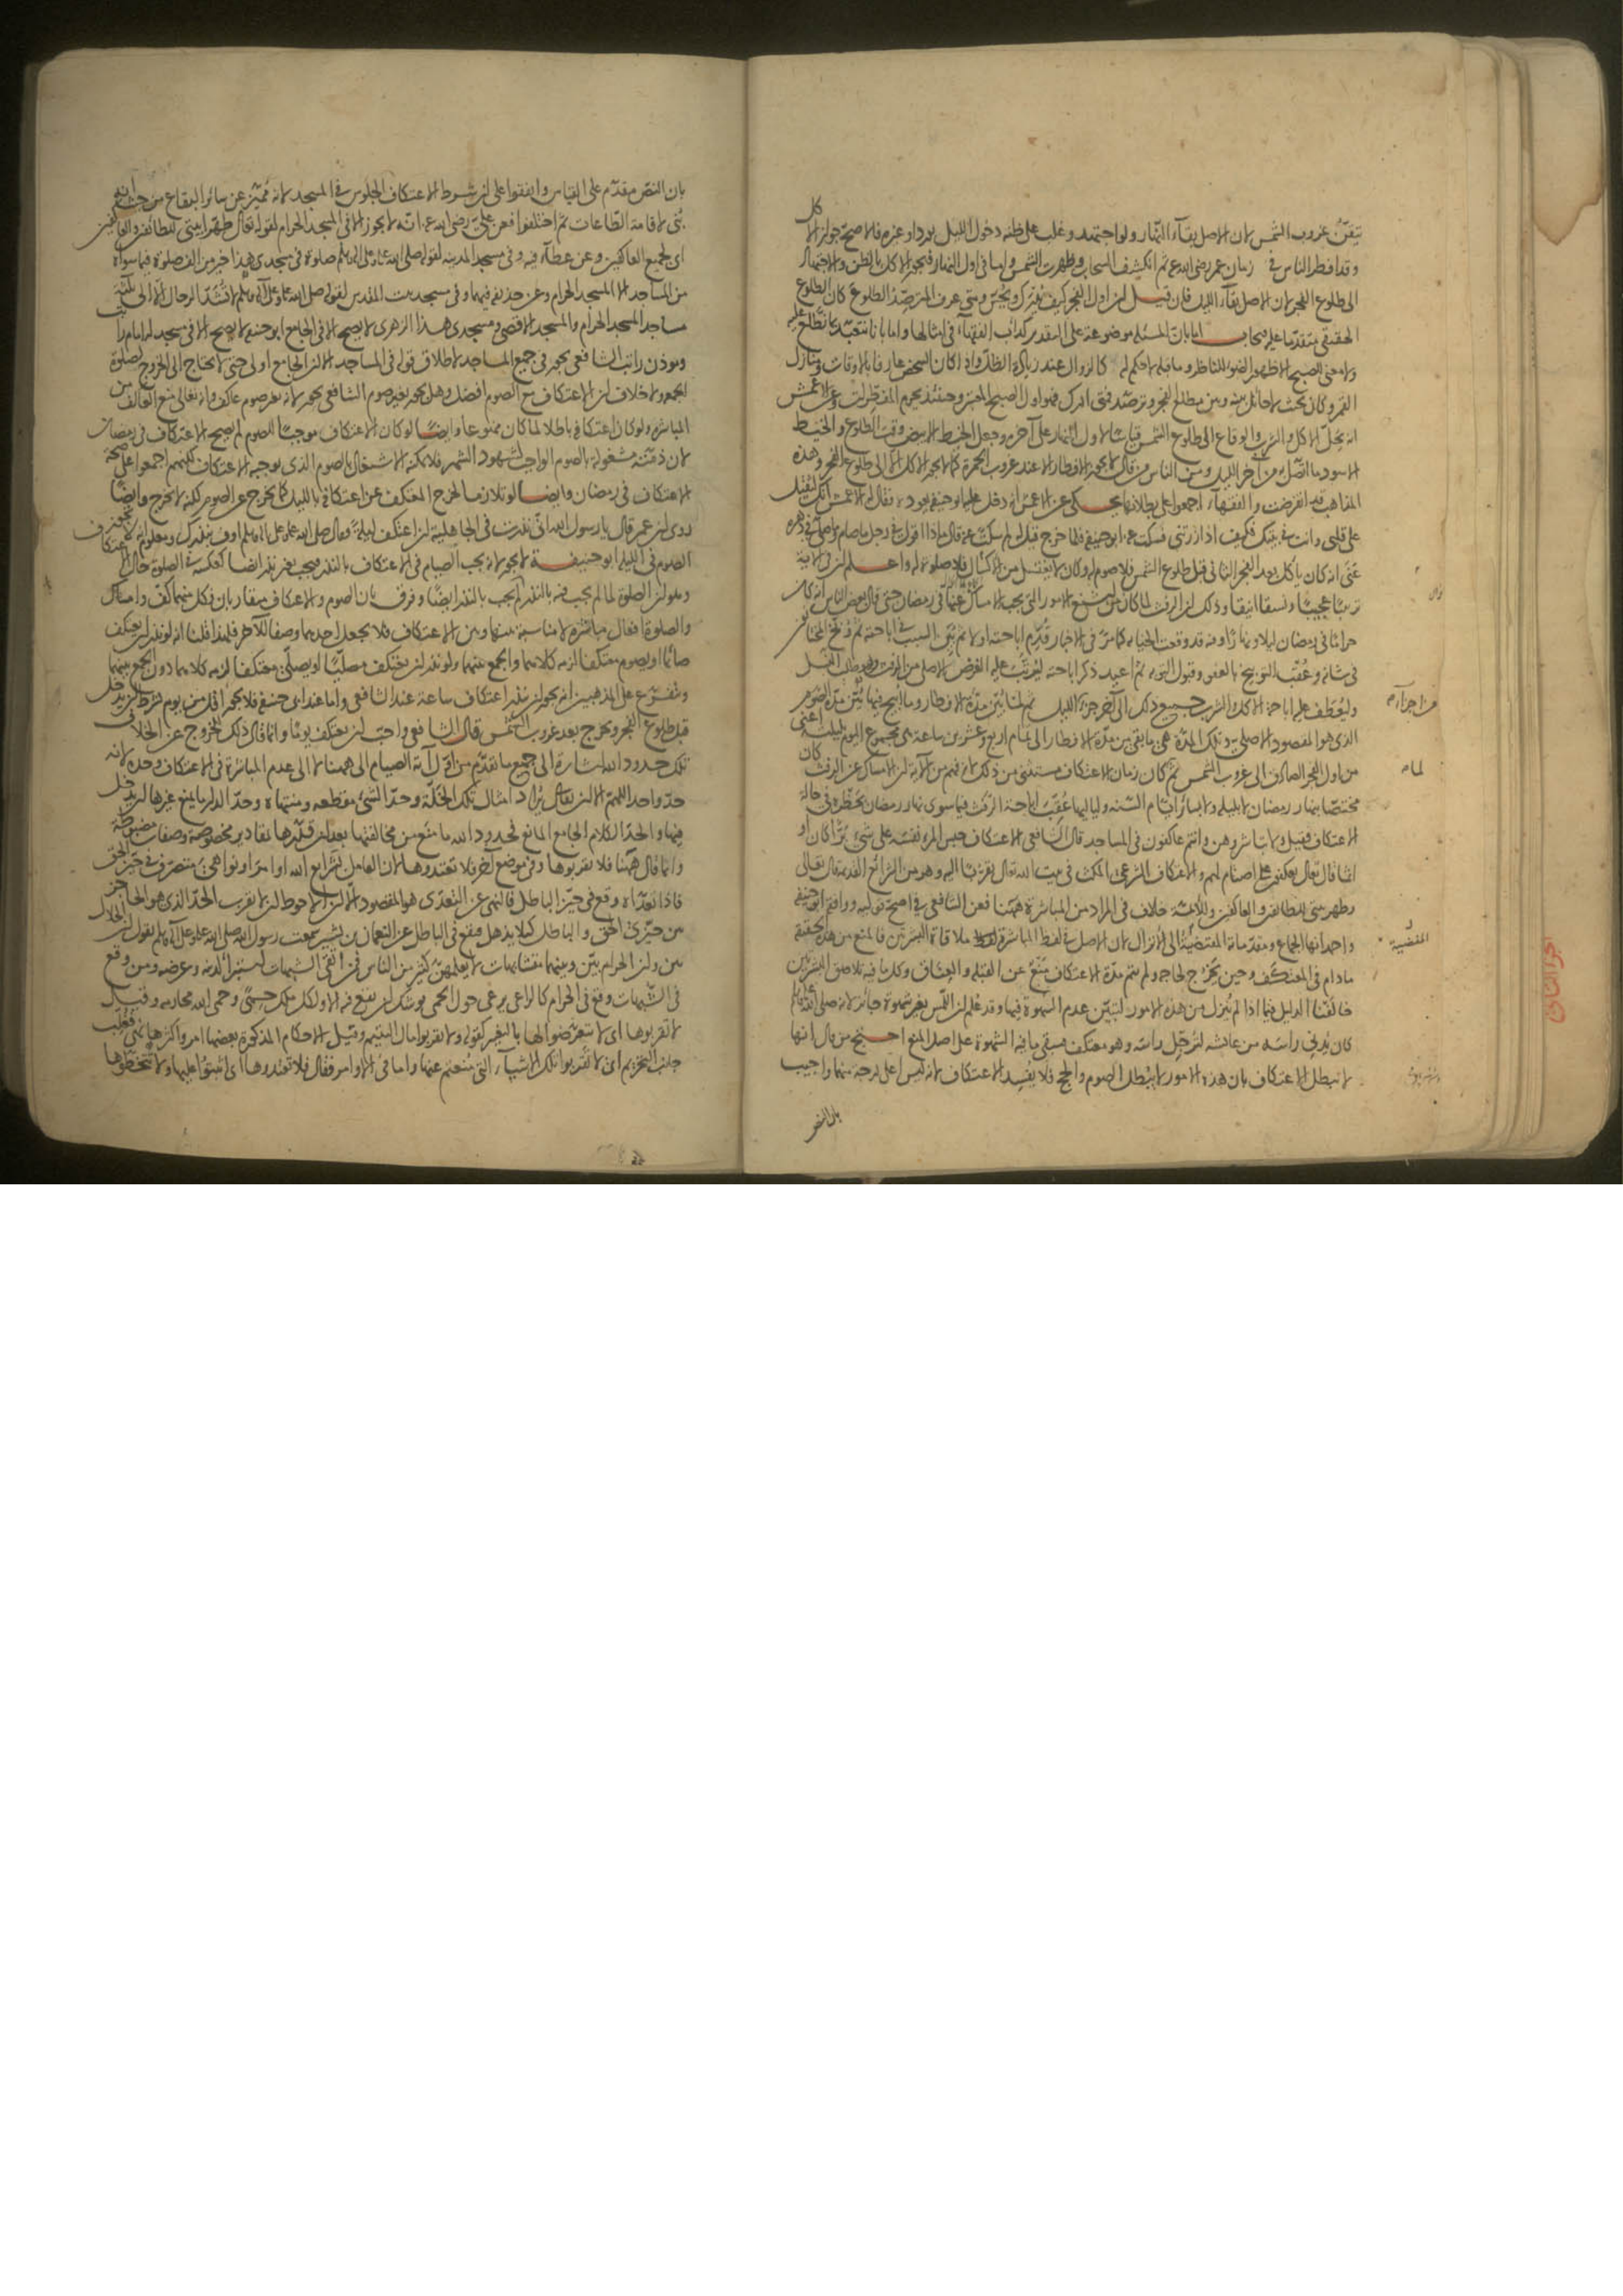 تيقن غروب الشمس لان الاصل بقاء النهار ولو اجتهد وغلب على ظنه دخول الليل بورد او غيره فالاصح جواز الاكل
وقد افطر الناس في زمان عمر رضي الله عنه ثم انكشف السحاب وظهرت الشمس واما في اول النهار فيجوز الاكل بالظن والاجتهاد
الى طلوع الفجر لان الاصل بقاء الليل فان قيل لنز اول الفجر كيف يدرك ويحس ومتى عرف المترصد الطلوع كان الطلوع
الحقيقي متقدما عليه يجاب اما بان المسئلة موضوعة على التقدير كداب الفقهاء في امثالها واما بانا نتعبد بما نطلع عليه
ولا معنى للصبح الا ظهور الضوء للناظر وما قبله لا حكم له كالزوال عند زيادة الظل واذا كان الشخص عارفا بالاوقات ومنازل
القمر وكان بحيث لا حائل بينه وبين مطالع الفجر وترصد فمتى ادرك فهو اول الصبح المعتبر وحينئذ يحرم المفطرات وعن الاعمش
انه يحل الاكل والشرب والوقاع الى طلوع الشمس قياسا لاول النهار على آخره وجعل الخيط الابيض وقت الطلوع والخيط
الاسود ما اتصل به من آخر الليل ومن الناس من قال لا يجوز الافطار الا عند غروب الحمرة كما لا يجوز الاكل الا الى طلوع الفجر وهذه
المذاهب قد انقرضت والفقهاء اجمعوا على بطلانها يحكى عن الاعمش انه دخل عليه ابو حنيفة يعوده فقال له الاعمش انك لثقيل
على قلبي وانت في بيتك فكيف اذا زرتني فسكت عنه ابو حنيفة فلما خرج قيل له لم سكت عنه قال ماذا اقول في رجل ما صام وما صلى في دهره
عنى انه كان ياكل بعد الفجر الثاني قبل طلوع الشمس فلا صوم له وكان لا يغتسل من الاكسال فلا صلوة له واعلم لنز في الآية
ترتيبا عجيبا ونسقا انيقا وذلك لنز الرفث لما كان من اشنع الامور التي يجب الامساك عنها في رمضان حتى قال بعض الناس انه كان
حراما في رمضان ليلا ونهارا وانه قد وقعت الخيانة كما مر في الاخبار قدم اباحته اولا ثم بين السبب في اباحته ثم وبخ المختانين
في شانه وعقب التوبيخ بالعفو وقبول التوبة ثم اعيد ذكر اباحته ليترتب عليه الغرض الاصلي من الرفث وهو طلب النسل
وليعطف عليه اباحة الاكل والشرب جميع ذلك الى آخر جزء من الليل ثم لما بين مدة الافطار وما ابيح فيها بين مدة الصوم
الذي هو المقصود الاصلي وتلك المدة هي ما بقي من مدة الافطار الى تمام اربع وعشرين ساعة هي مجموع اليوم بليلته اعني
من اول الفجر الصادق الى غروب الشمس ثم كان زمان الاعتكاف مستثنى من ذلك لانه فهم من الآية لنز الامساك عن الرفث كان
مختصا بنهار رمضان لا بليله ولا بسائر ايام السنة ولياليها عقب اباحة الرفث فيما سوى نهار رمضان بحظره في حالة
الاعتكاف فقيل ولا تباشروهن وانتم عاكفون في المساجد قال الشافعي الاعتكاف حبس المرء نفسه على شيء برا كان او
اثما قال تعالى يعكفون على اصنام لهم والاعتكاف الشرعي المكث في بيت الله تعالى تقربا اليه وهو من الشرائع القديمة قال تعالى
وطهر بيتي للطائفين والعاكفين وللائمة خلاف في المراد من المباشرة ههنا فعن الشافعي في اصح قوليه ووافقه ابو حنيفة
واحمد انها الجماع ومقدماته المفضية الى الانزال لان الاصل في لفظ المباشرة ملاقاة البشرتين فالمنع من هذه الحقيقة
مادام في المعتكف وحين يخرج لحاجة ولم يتم مدة الاعتكاف منع عن القبلة والعناق وكل ما فيه تلاصق البشرتين
خالفنا الدليل فيما اذا لم ينزل من هذه الامور لتبين عدم الشهوة فيها وقد علم لنز اللمس بغير شهوة جائز لانه صلى الله عليه وسلم
كان يدني راسه من عائشة لترجل راسه وهو معتكف فبقي ما فيه الشهوة على اصل المنع احتج من قال انها
لا تبطل الاعتكاف بان هذه الامور لا تبطل الصوم والحج فلا يفسد الاعتكاف لانه ليس اعلى درجة منهما واجيب
بان النص
من اجزاء
لماه
المفضية
الجزء الثاني
بان النص مقدم على القياس واتفقوا على لنز شرط الاعتكاف الجلوس في المسجد لانه مميز عن سائر البقاع من حيث انه
بني لاقامة الطاعات ثم اختلفوا فعن علي رضي الله عنه انه لا يجوز الا في المسجد الحرام لقوله تعالى طهرا بيتي للطائفين والعاكفين
اي لجميع العاكفين وعن عطاء فيه وفي مسجد المدينة لقوله صلى الله عليه وعلى آله وسلم صلوة في مسجدي هذا خير من الف صلوة فيما سواه
من المساجد الا المسجد الحرام وعن حذيفة فيهما وفي مسجد بيت المقدس لقوله صلى الله عليه وعلى آله وسلم لا تشد الرحال الا الى ثلثة
مساجد المسجد الحرام والمسجد الاقصى ومسجدي هذا الزهري لا يصح الا في الجامع ابو حنيفة لا يصح الا في مسجد له امام راتب
ومؤذن راتب الشافعي يجوز في جميع المساجد لاطلاق قوله في المساجد الا لنز الجامع اولى حتى لا يحتاج الى الخروج لصلوة
الجمعة ولا خلاف لنز الاعتكاف مع الصوم افضل وهل يجوز بغير صوم الشافعي يجوز لانه بغير صوم عاكف وانه تعالى منع العاكف من
المباشرة ولو كان اعتكافه باطلا لما كان ممنوعا وايضا لو كان الاعتكاف موجبا للصوم لم يصح الاعتكاف في رمضان
لان ذمته مشغولة بالصوم الواجب لشهود الشهر فلا يمكنه الاشتغال بالصوم الذي يوجبه الاعتكاف لكنهم اجمعوا على صحة
الاعتكاف في رمضان وايضا لو تلازما لخرج المعتكف عن اعتكافه بالليل كما يخرج عن الصوم لكنه لا يخرج وايضا
روي لنز عمر قال يا رسول الله اني نذرت في الجاهلية لنز اعتكف ليلة فقال صلى الله عليه وعلى آله وسلم اوف بنذرك ومعلوم انه لا يجوز
الصوم في الليل ابو حنيفة لا يجوز لانه يجب الصيام في الاعتكاف بالنذر فيجب بغير نذر ايضا كعكسه في الصلوة حال الاعتكاف
وهو لنز الصلوة لما لم يجب فيه بالنذر لم يجب بالنذر ايضا وفرق بان الصوم والاعتكاف متقاربان في كل منهما كف وامساك
والصلوة افعال مباشرة لا مناسبة بينها وبين الاعتكاف فلا يجعل احدهما وصفا للآخر فلهذا قلنا انه لو نذر لنز يعتكف
صائما او يصوم معتكفا لزمه كلاهما والجمع بينهما ولو نذر لنز يعتكف مصليا او يصلي معتكفا لزمه كلاهما دون الجمع بينهما
ويتفرع على المذهبين انه يجوز لنز ينذر اعتكاف ساعة عند الشافعي واما عند ابي حنيفة فلا يجوز اقل من يوم بشرط لنز يدخل
قبل طلوع الفجر ويخرج بعد غروب الشمس قال الشافعي واحب لنز يعتكف يوما وانما قال ذلك للخروج عن الخلاف
تلك حدود الله اشارة الى جميع ما تقدم من اول آية الصيام الى ههنا لا الى عدم المباشرة في الاعتكاف وحده لانه
حد واحد اللهم الا لنز يقال يراد امثال تلك الخلة وحد الشيء مقطعه ومنتهاه وحد الدار ما يمنع غيرها لنز يدخل
فيها والحد الكلام الجامع المانع فحدود الله ما منع من مخالفتها بعد لنز قدرها بمقادير مخصوصة وصفات مضبوطة
وانما قال ههنا فلا تقربوها وفي موضع آخر فلا تعتدوها لان العامل بشرايع الله اوامر او نواهي متصرف في حيز الحق
فاذا تعداه وقع في حيز الباطل فالنهي عن التعدي هو المقصود الا لنز الاحوط لنز لا يقرب الحد الذي هو الحاجز
من حيزي الحق والباطل كيلا يذهل فيقع في الباطل عن النعمان بن بشير سمعت رسول الله صلى الله عليه وعلى آله وسلم يقول لنز الحلال
بين ولنز الحرام بين وبينهما متشابهات لا يعلمهن كثير من الناس فمن اتقى الشبهات استبرأ لدينه وعرضه ومن وقع
في الشبهات وقع في الحرام كالراعي يرعى حول الحمى يوشك لنز يقع فيه الا ولكل ملك حمى وحمى الله محارمه وقيل
لا تقربوها اي لا تتعرضوا لها بالتغيير كقوله ولا تقربوا مال اليتيم وقيل الاحكام المذكورة بعضها امر واكثرها نهي فغلب
جانب التحريم اي لا تقربوا تلك الاشياء التي منعتم عنها واما في الاوامر فقال فلا تعتدوها اي اثبتوا عليها ولا تتخطوها